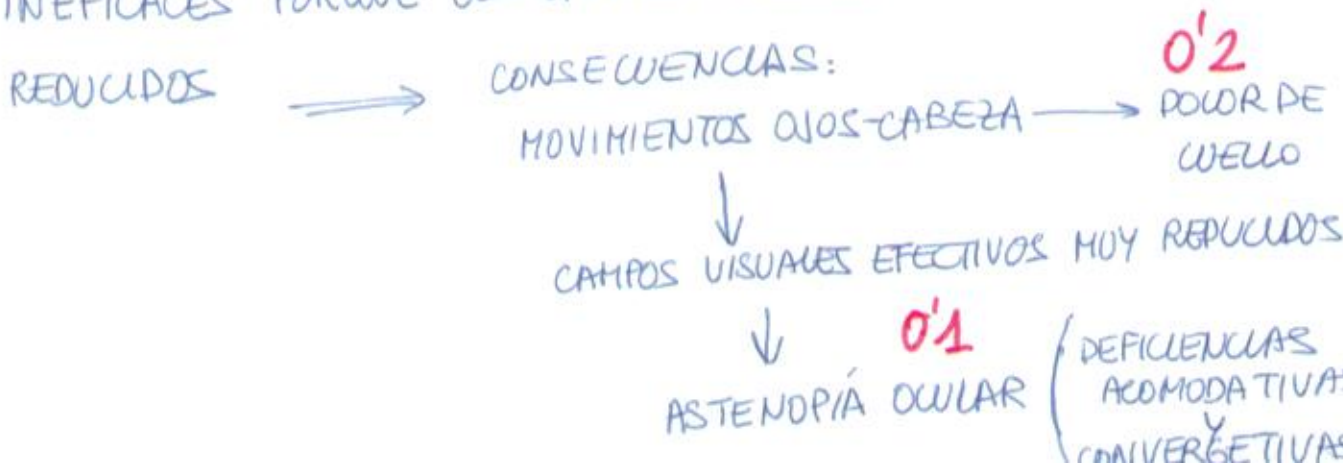 INEFICACES PORQUE
REDUCIDOS ⟹ CONSECUENCIAS:
MOVIMIENTOS OJOS-CABEZA → 0'2 DOLOR DE
CUELLO
↓
CAMPOS VISUALES EFECTIVOS MUY REDUCIDOS
↓ 0'1
ASTENOPIÁ OCULAR ( DEFICIENCIAS
ACOMODATIVAS
Y
CONVERGETIVAS